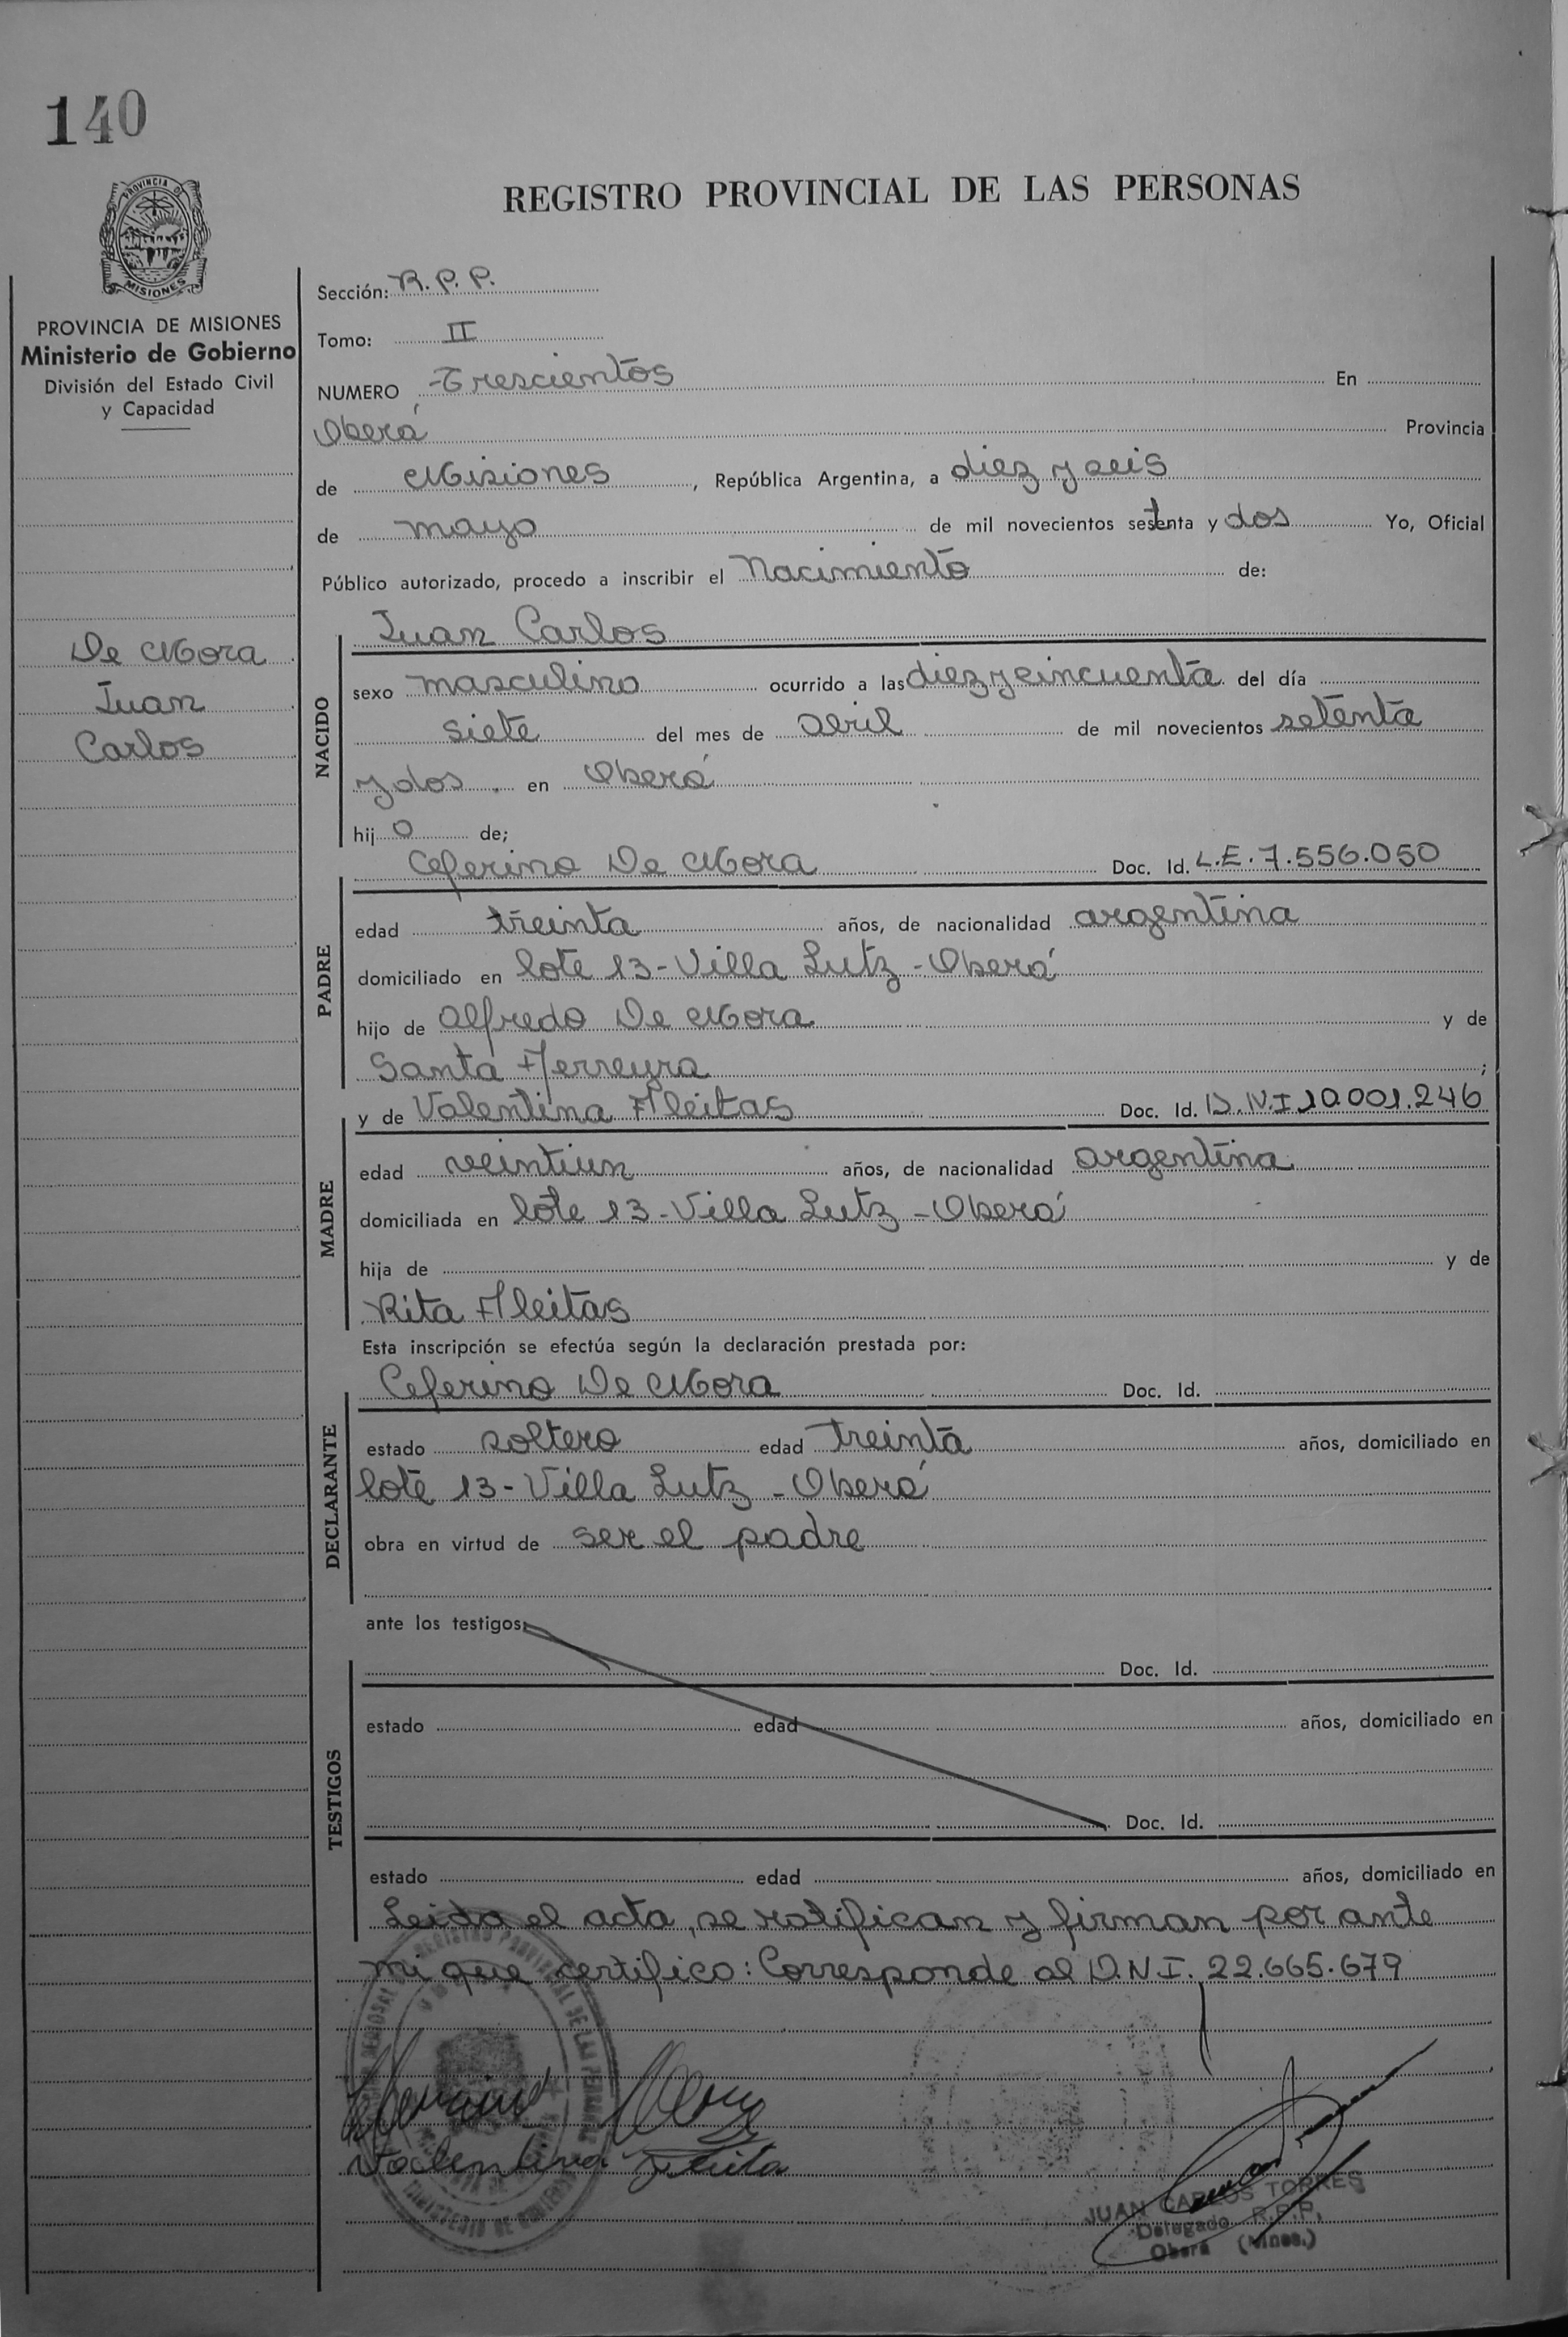 140
PROVINCIA DE
MISIONES
PROVINCIA DE MISIONES
Ministerio de Gobierno
División del Estado Civil
y Capacidad
De Mora
Juan
Carlos
REGISTRO PROVINCIAL DE LAS PERSONAS
Sección: R.P.P.
Tomo: II
NUMERO Trescientos En
Oberá Provincia
de Misiones, República Argentina, a diez y seis
de mayo de mil novecientos setenta y dos Yo, Oficial
Público autorizado, procedo a inscribir el Nacimiento de:
Juan Carlos
NACIDO
sexo masculino ocurrido a las diez y cincuenta del día
siete del mes de abril de mil novecientos setenta
y dos. en Oberá
hijo de;
Ceferino De Mora Doc. Id. L.E. 7.556.050
PADRE
edad treinta años, de nacionalidad argentina
domiciliado en lote 13-Villa Lutz-Oberá
hijo de Alfredo De Mora y de
Santa Ferreyra;
y de Valentina Fleitas Doc. Id. D.N.I 10.001.246
MADRE
edad veintiun años, de nacionalidad argentina
domiciliada en lote 13-Villa Lutz-Oberá
hija de y de
Rita Fleitas
Esta inscripción se efectúa según la declaración prestada por:
Ceferino De Mora Doc. Id.
DECLARANTE
estado soltero edad treinta años, domiciliado en
lote 13-Villa Lutz-Oberá
obra en virtud de ser el padre
ante los testigos:
TESTIGOS
Doc. Id.
estado edad años, domiciliado en
Doc. Id.
estado edad años, domiciliado en
Leida el acta, se ratifican y firman por ante
mi que certifico: Corresponde al D.N.I. 22.665.679
Valentina
JUAN CARLOS TORRES
Delegado R.P.P.
Oberá (Mnes.)